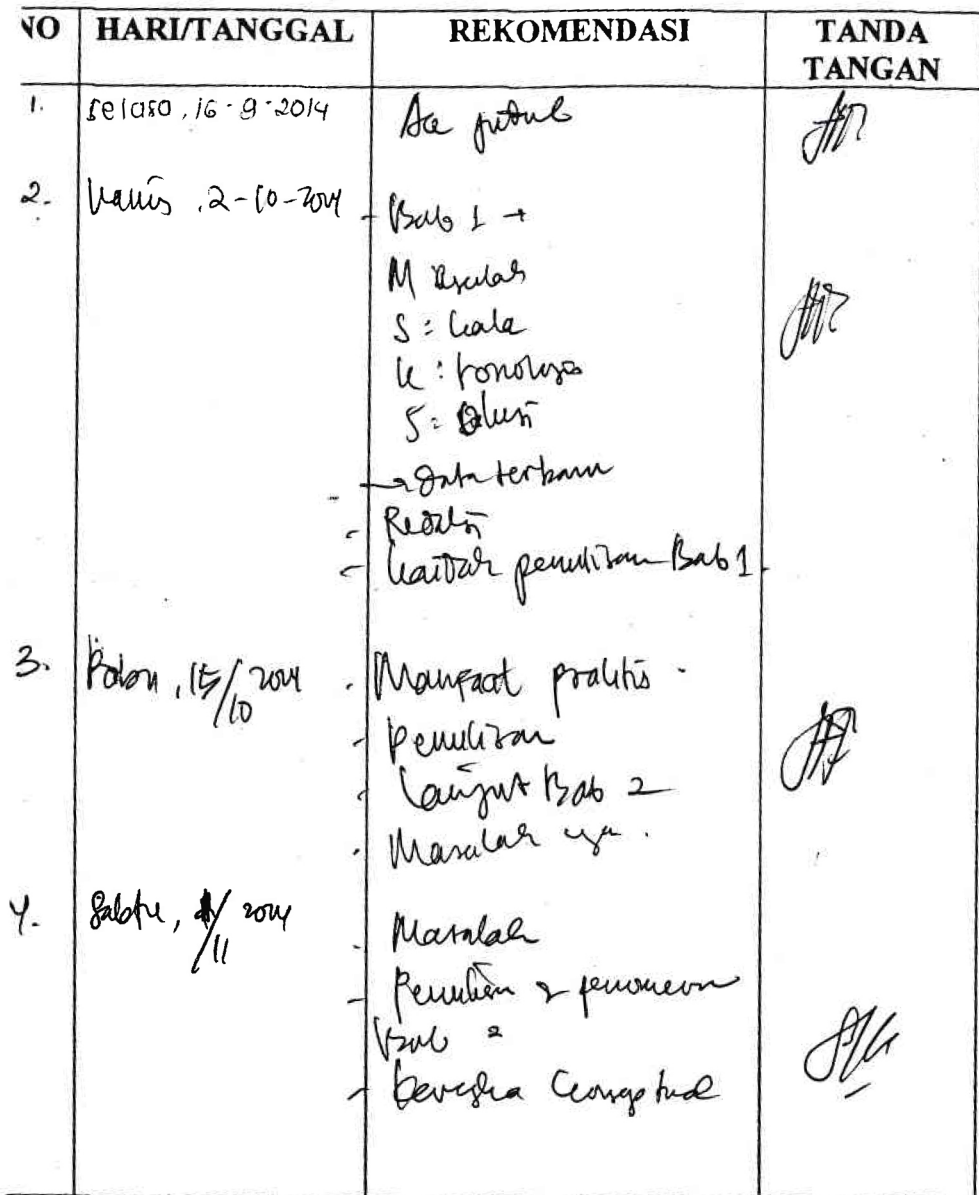 NO HARI/TANGGAL REKOMENDASI TANDA TANGAN
1. Selasa, 16-9-2014 Acc judul
2. Kamis, 2-10-2014 - Bab 1 →
M asalah
S : kala
K : ronologis
S : olusi
- → Data terbaru
- Redaksi
- Kaidah penulisan Bab 1
3. Rabu, 15/10 2014 . Manfaat praktis .
- Penulisan
- Lanjut Bab 2
. Masalah nya .
4. Sabtu, 1/11 2014 . Masalah
- Penulisan & penomeran
Bab 2
- Kerangka Konseptual